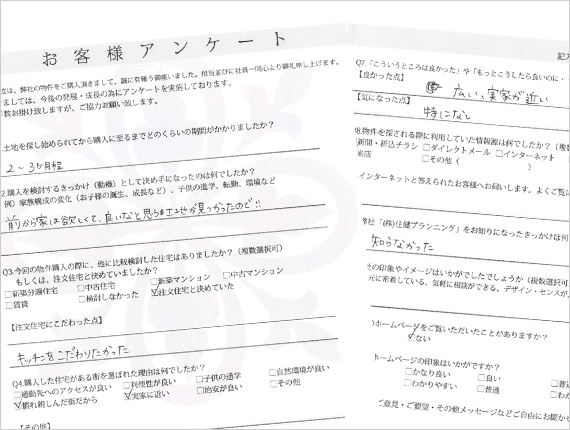 お客様アンケート
度は、弊社の物件をご購入頂きまして、誠に有難う御座いました。担当並びに社員一同心より御礼申し上げます。
ましては、今後の発展・成長の為にアンケートを実施しております。
数お掛け致しますが、ご協力お願い致します。
土地を探し始められてから購入に至るまでどのくらいの期間がかかりましたか？
2～3ヶ月程
2.購入を検討するきっかけ（動機）として決め手になったのは何でしたか？
例）家族構成の変化（お子様の誕生、成長など）、子供の進学、転勤、環境など
前から家は欲しくて、良いなと思う土地が見つかったので!!
Q3.今回の物件購入の際に、他に比較検討した住宅はありましたか？（複数選択可）
もしくは、注文住宅と決めていましたか？
□新築分譲住宅 □中古住宅 □新築マンション □中古マンション
□賃貸 □検討しなかった ☑注文住宅と決めていた
【注文住宅にこだわった点】
キッチンをこだわりたかった
Q4.購入した住宅がある街を選ばれた理由は何でしたか？
□通勤先へのアクセスが良い □利便性が良い □子供の通学 □自然環境が良い
☑慣れ親しんだ街だから ☑実家に近い □治安が良い □その他
【その他】
記入
Q7.「こういうところは良かった」や「もっとこうしたら良いのに・
【良かった点】
広い、実家が近い
【気になった点】
特になし
8.物件を探される際に利用していた情報源は何でしたか？（複数
新聞・折込チラシ □ダイレクトメール □インターネット
来店 □その他（ ）
インターネットと答えられたお客様へお伺いします。よくご覧に
弊社「(株)住健プランニング」をお知りになったきっかけは何
知らなかった
の印象やイメージはいかがでしたでしょうか（複数選択可
元に密着している、気軽に相談ができる、デザイン・センスが
ホームページをご覧いただいたことがありますか？
☑ない
ホームページの印象はいかがですか？
□かなり良い □良い □普通
□わかりやすい □普通 □わか
ご意見・ご要望・その他メッセージなどご自由にお聞か